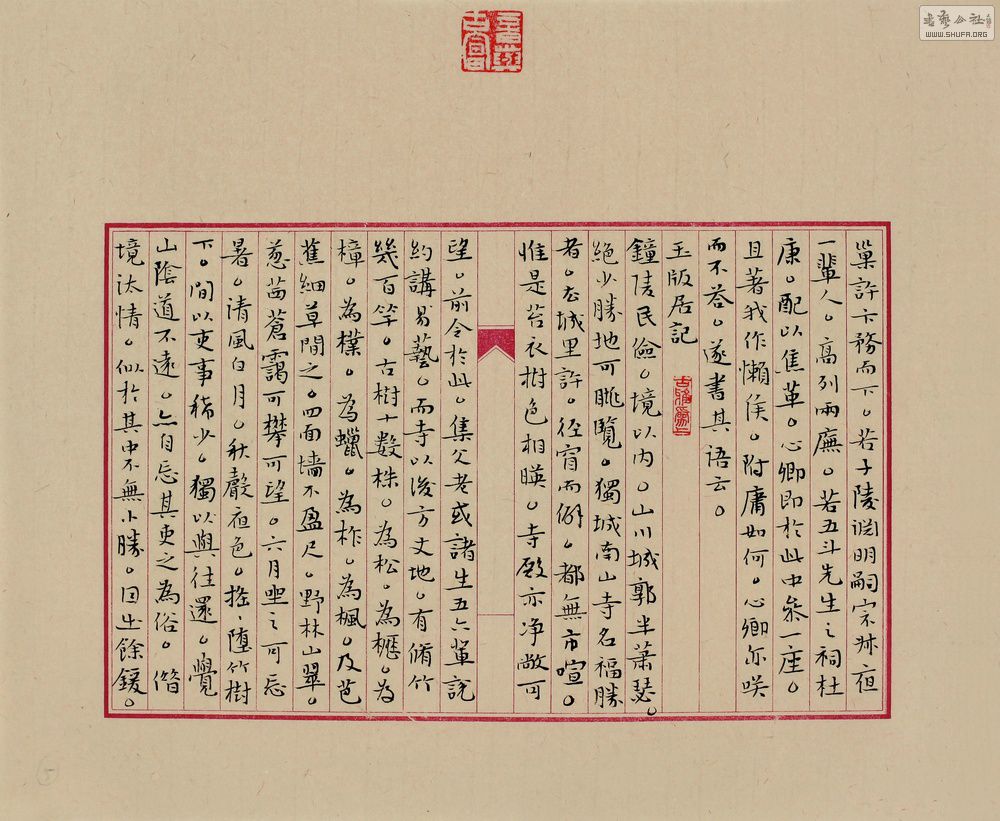 吾與古會
巢許卞務而下。若子陵淵明嗣宗叔夜
一輩人。高列兩廡。若五斗先生之祠杜
康。配以焦革。心卿即於此中參一座。
且著我作懶侯。附庸如何。心卿亦咲
而不荅。遂書其語云。
玉版居記
鐘陵民儉。境以内。山川城郭半蕭瑟。
絕少勝地可眺覽。獨城南山寺名福勝
者。去城里許。徑窅而僻。都無市喧。
惟是苔衣樹色相暎。寺殿亦净敞可
望。前令於此。集父老或諸生五六輩說
約講易藝。而寺以後方丈地。有脩竹
幾百竿。古樹十數株。為松。為櫪。為
樟。為樸。為蠟。為柞。為楓。及芭
蕉細草間之。四面墻不盈尺。野林山翠。
葱茜蒼靄可攀可望。六月坐之可忘
暑。清風白月。秋聲夜色。搖、墮竹樹
下。間以吏事稀少。獨以與往還。覺
山陰道不遠。亦自忘其吏之為俗。偕
境汰情。似於其中不無小勝。因出餘鍰。
5
書藝公社
WWW.SHUFA.ORG